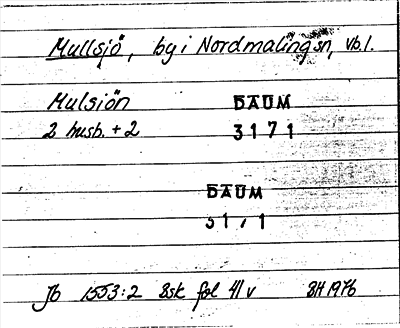 Mullsjö, by i Nordmalings sn, vb.l.
Mulsiön DAUM
2 husb. + 2 3171
DAUM
Jb 1553:2 8sk fol 41 v BH 1976